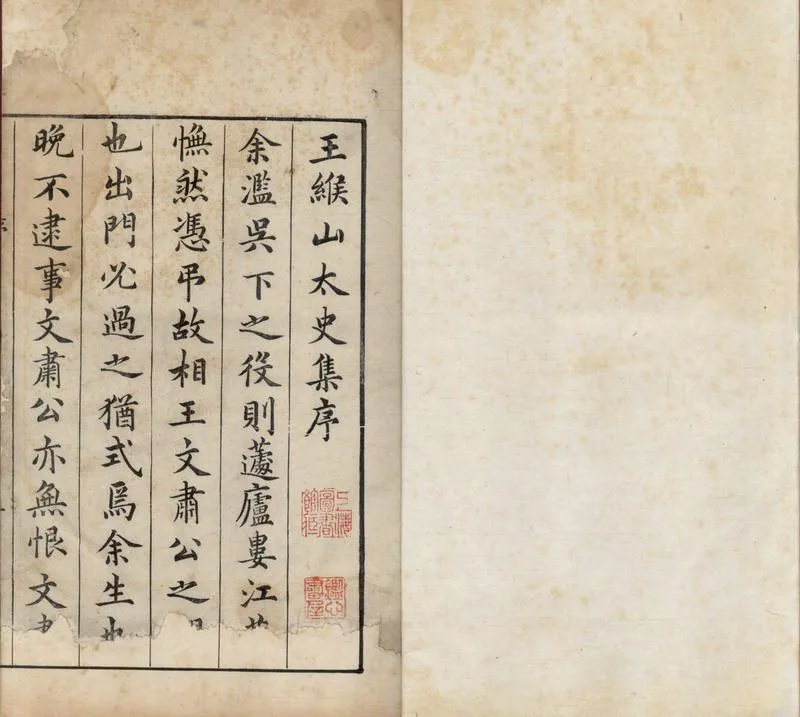 王緱山太史集序
上海圖書館藏
余濫吳下之役則蘧廬婁江
憮然憑弔故相王文肅公之
也出門必過之猶式焉余生也
晚不逮事文肅公亦無恨文